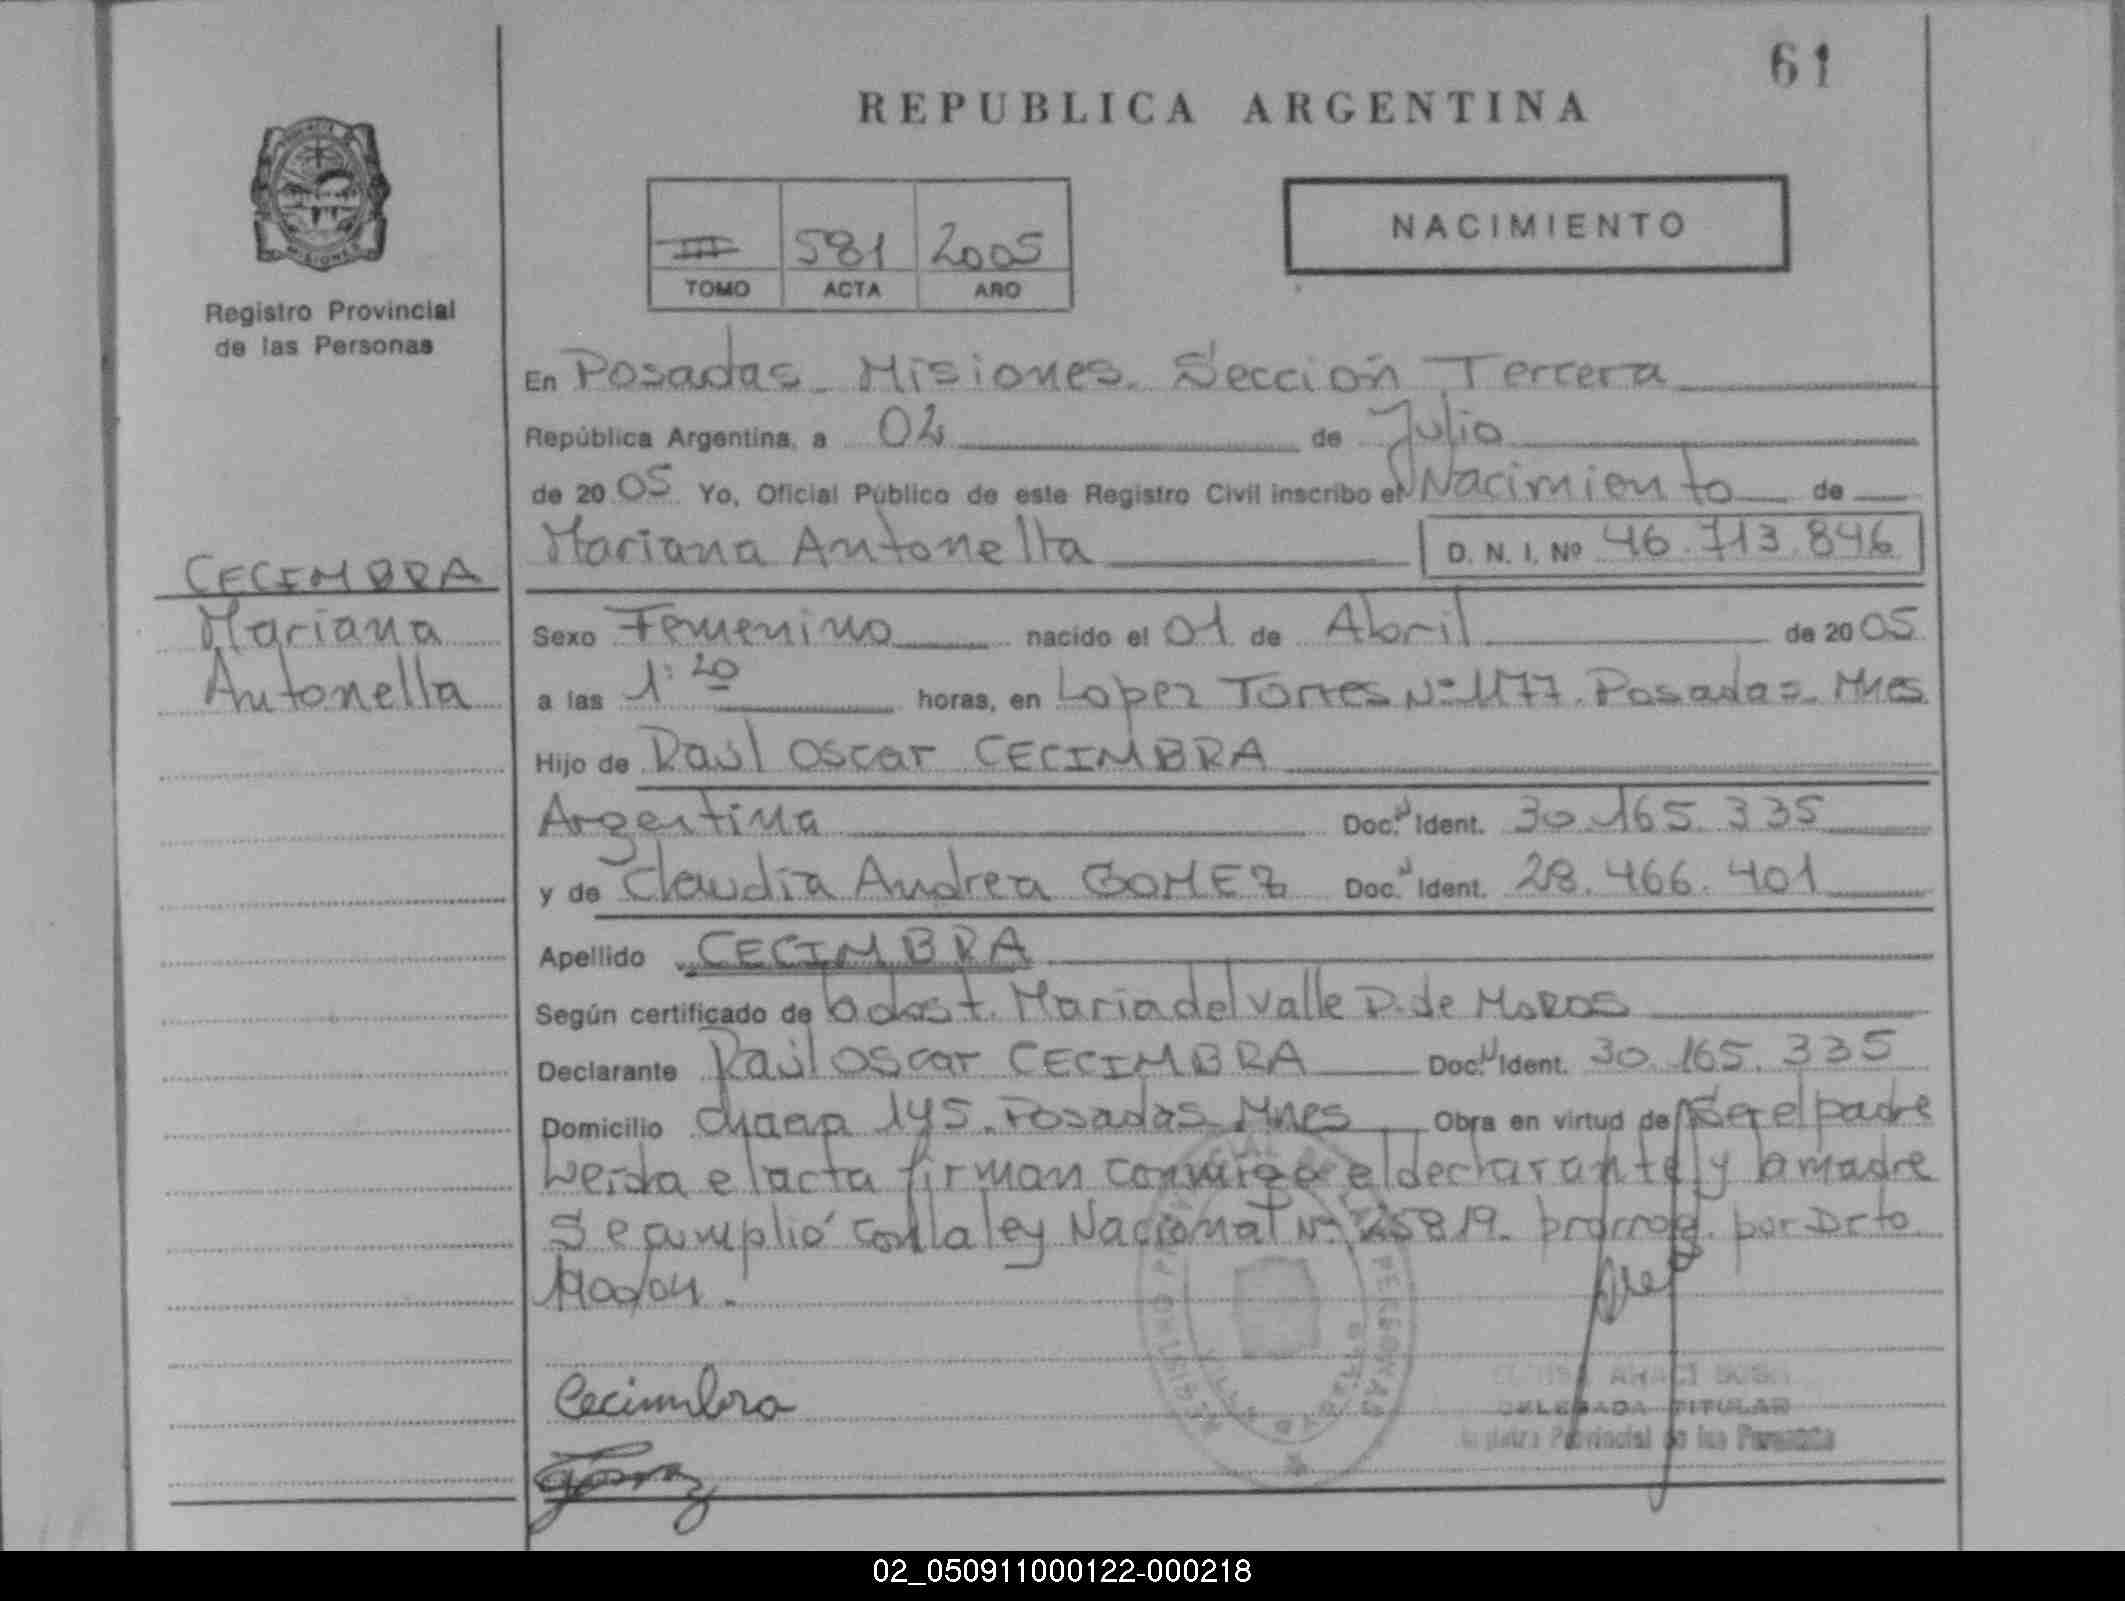 61
REPUBLICA ARGENTINA
NACIMIENTO
581 2005
TOMO ACTA AÑO
Registro Provincial
de las Personas
En Posadas - Misiones - Sección Tercera
República Argentina, a 04 de Julio
de 2005 Yo, Oficial Público de este Registro Civil inscribo el Nacimiento de
Mariana Antonella D. N. I. Nº 46.713.846
CECIMBRA
Mariana
Antonella
Sexo Femenino nacido el 01 de Abril de 2005
a las 1:20 horas, en Lopez Torres Nº 1177. Posadas - Mnes
Hijo de Raúl Oscar CECIMBRA
Argentina Doc. Ident. 30.165.335
y de Claudia Andrea GOMEZ Doc. Ident. 28.466.401
Apellido CECIMBRA
Según certificado de Obst. Maria del Valle D. de
Declarante Raúl Oscar CECIMBRA Doc. Ident. 30.165.335
Domicilio 145. Posadas Mnes Obra en virtud de Ser el padre
Leida el acta firman conmigo el declarante y la madre
Se cumplió con la ley Nacional Nº 25819. prorrog. por Dcto
Cecimbra
DELEGADA TITULAR
Registro Provincial de las Personas
02_050911000122-000218